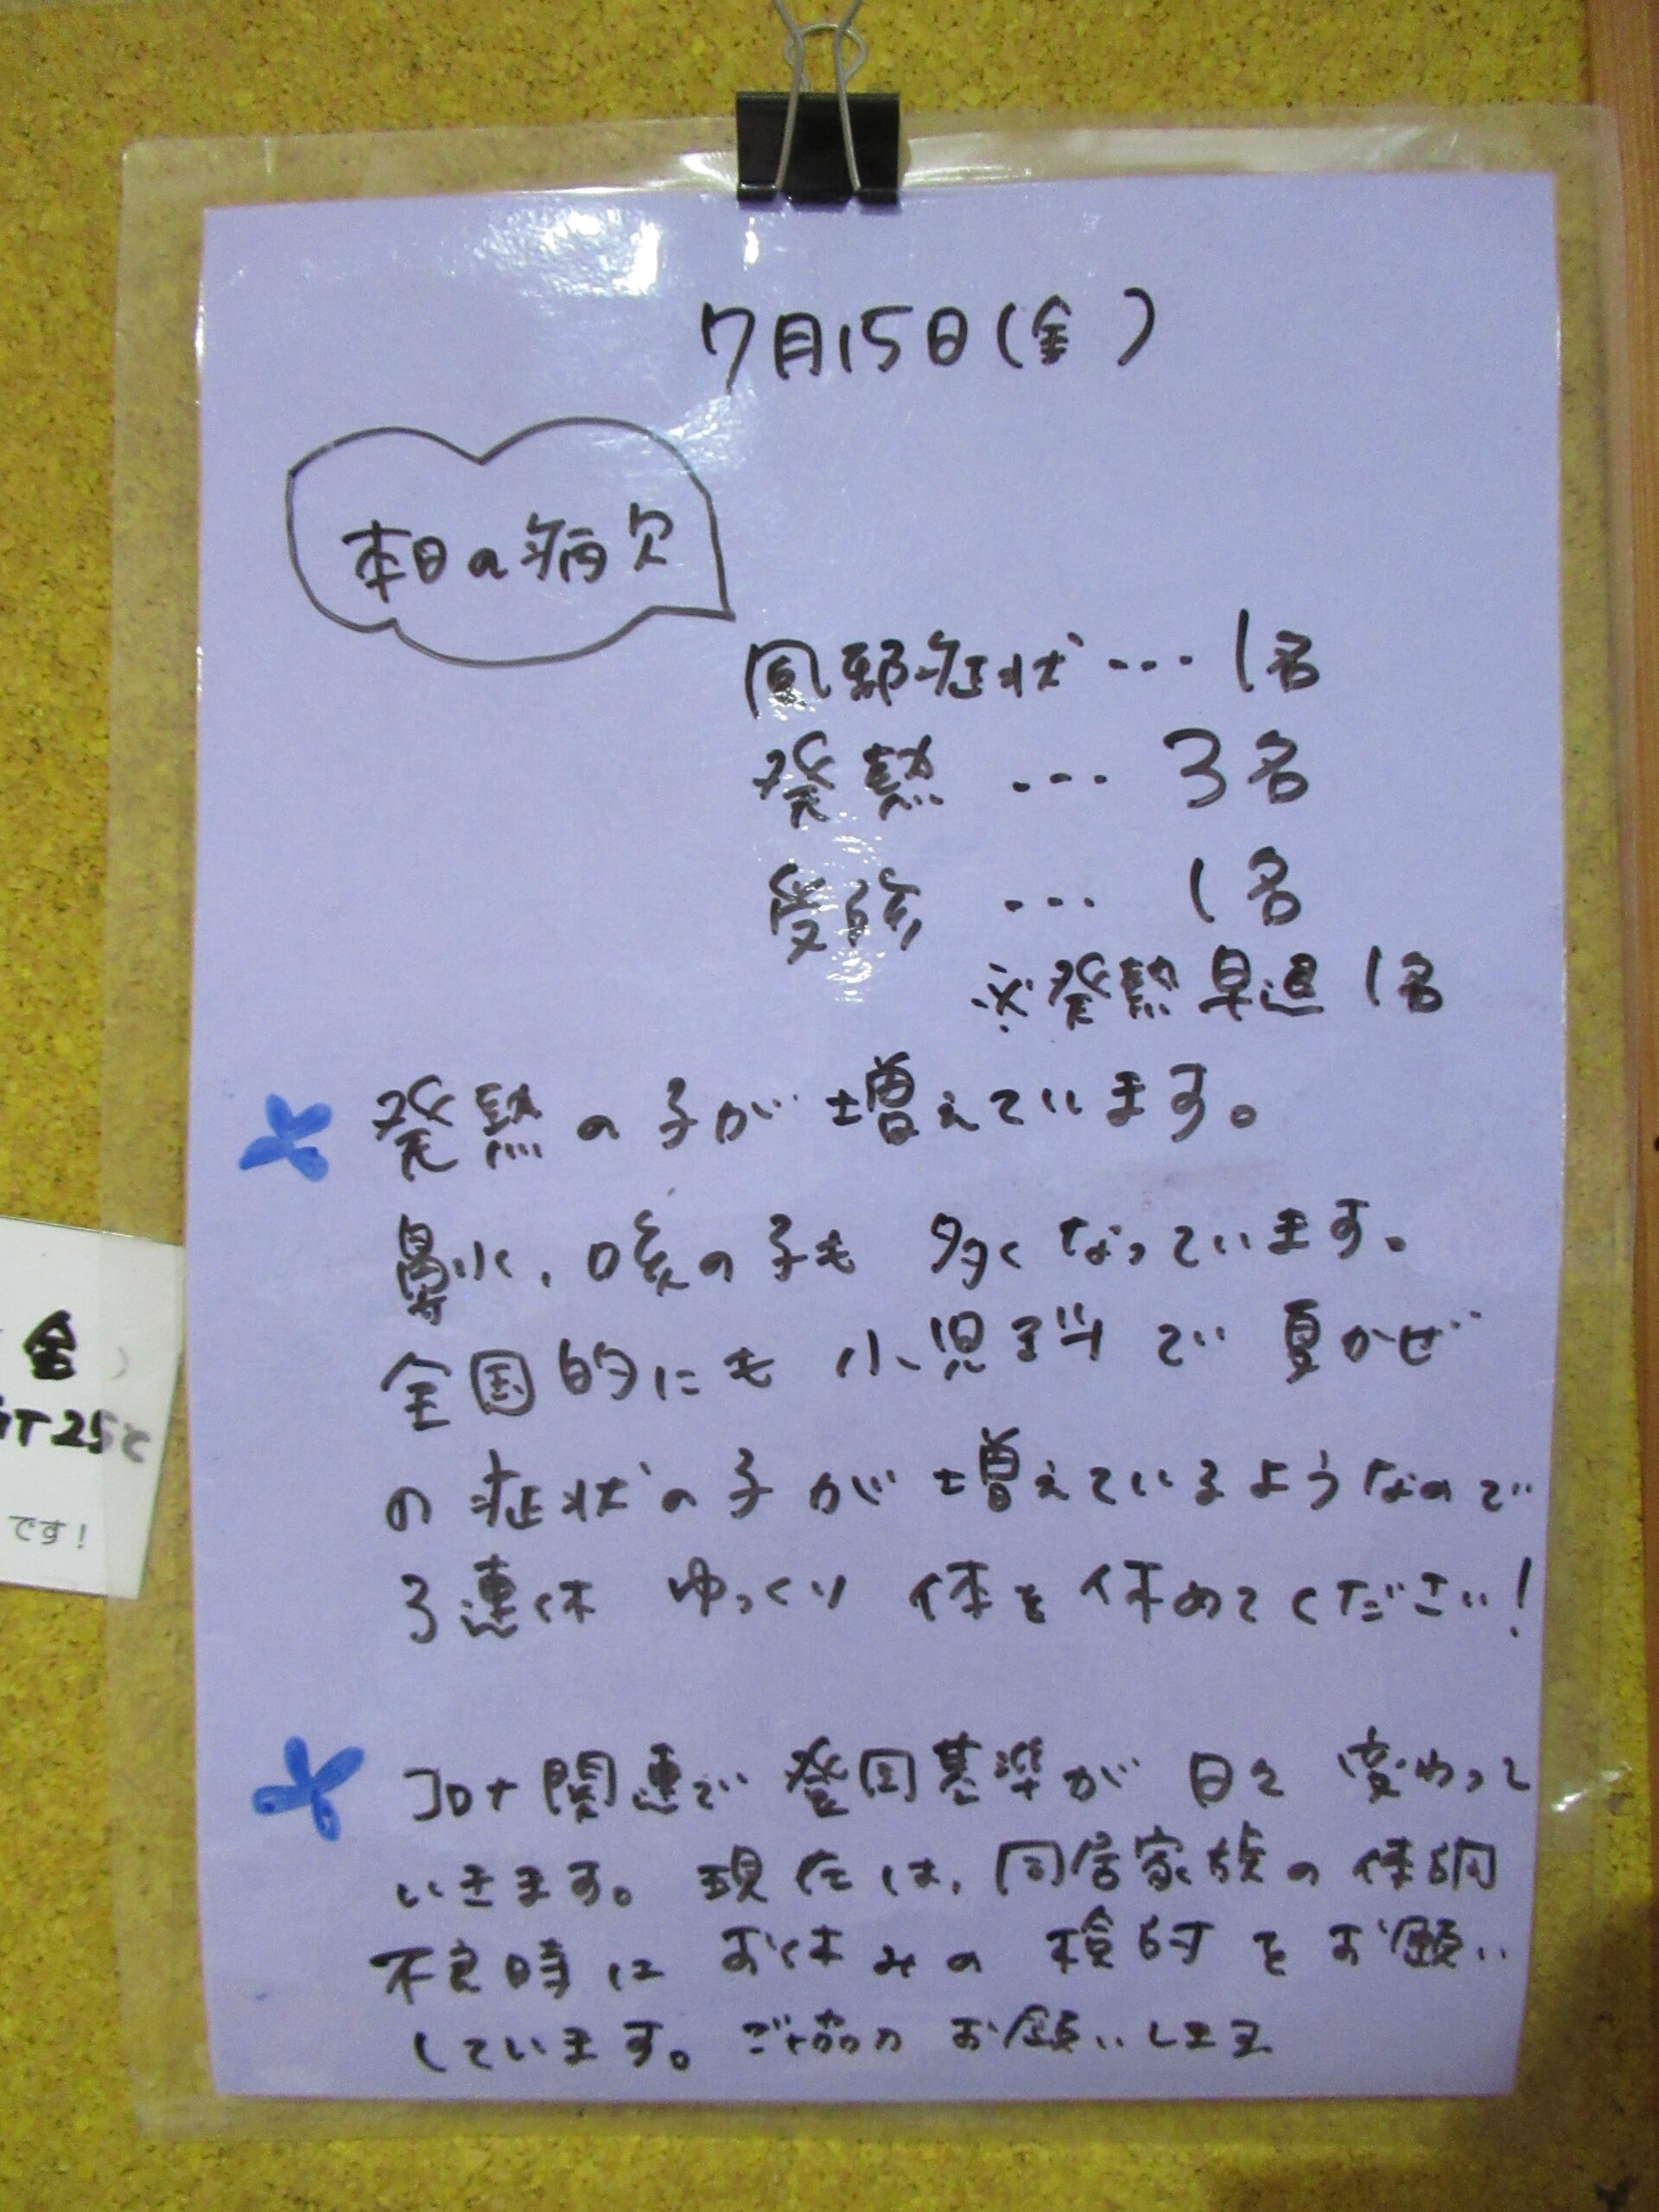 7月15日(金)
本日の病欠
風邪症状・・・1名
発熱・・・3名
受診・・・1名
※発熱早退1名
発熱の子が増えています。
鼻水、咳の子も多くなっています。
全国的にも小児科で夏かぜ
の症状の子が増えているようなので
3連休ゆっくり体を休めてください!
コロナ関連で登園基準が日々変わって
いきます。現在は、同居家族の体調
不良時にお休みの検討をお願い
しています。ご協力お願いします
金)
25℃
です!